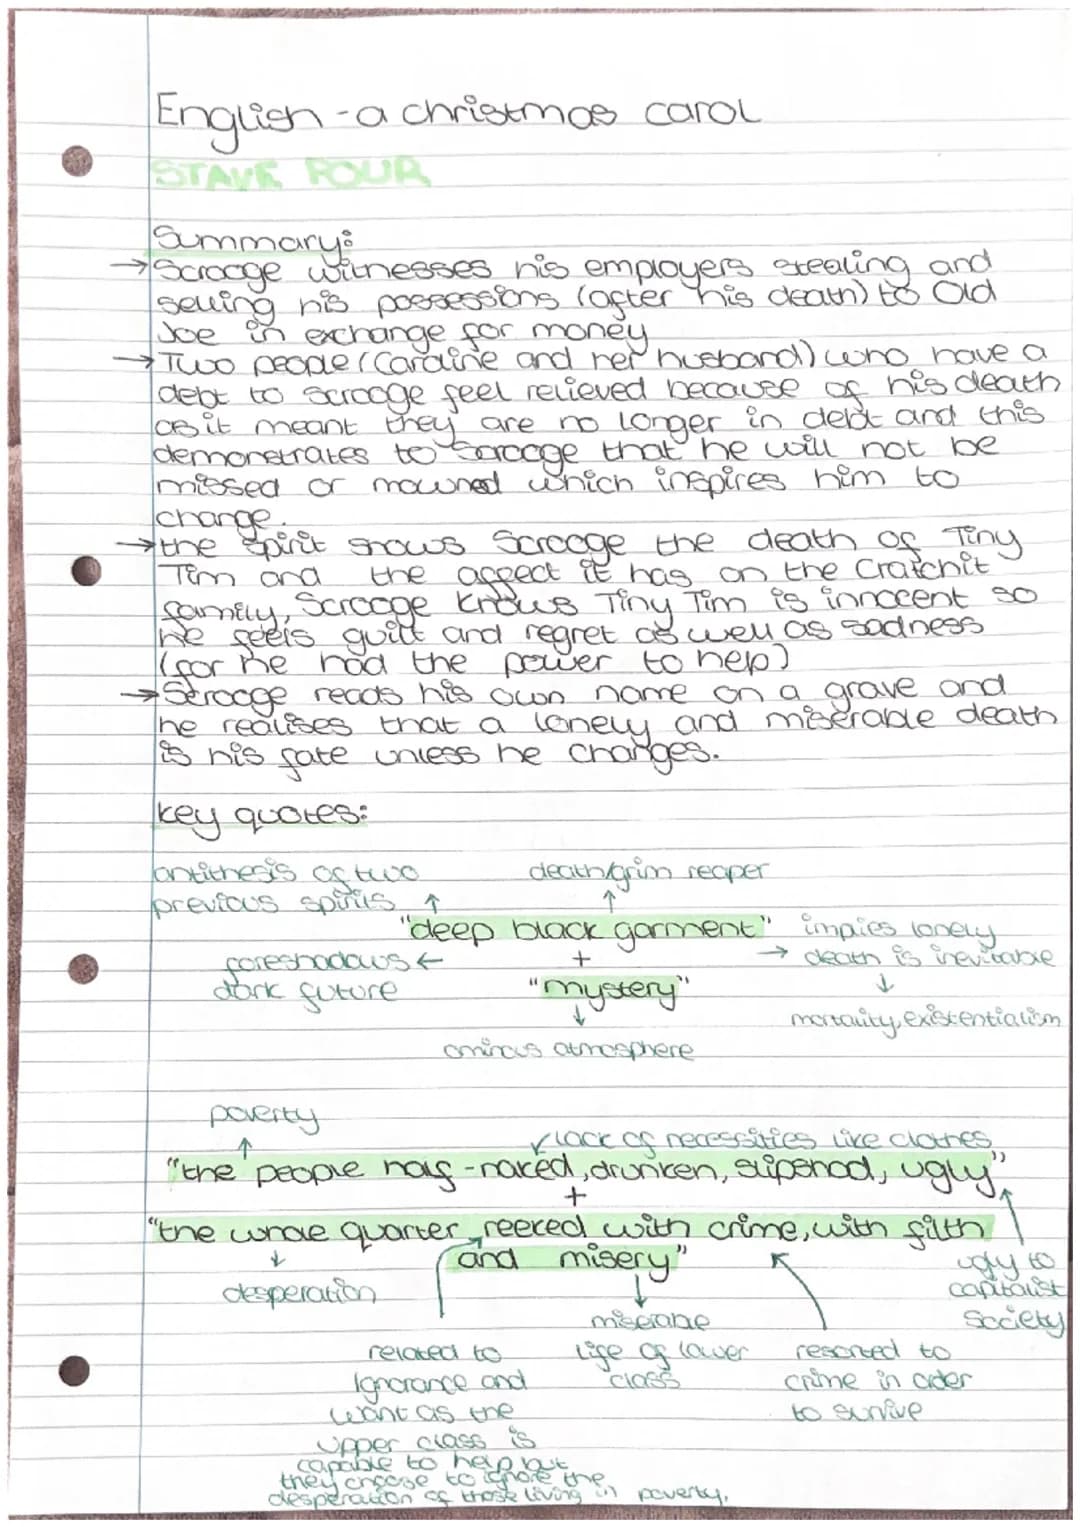 English - a christmas carol
STAVE FOUR
Summary:
→ Scrooge witnesses his employers stealing and
selling his possessions (after his death) to Old
Joe in exchange for money
→ Two people (Caroline and her husband) who have a
debt to scrooge feel relieved because of his death
as it meant they are no longer in debt and this
demonstrates to Scrooge that he will not be
missed or mourned which inspires him to
change.
→ the spirit shows Scrooge the death of Tiny
Tim and the affect it has on the Cratchit
family, Scrooge knows Tiny Tim is innocent so
he feels guilt and regret as well as sadness
(for he had the power to help)
→ Scrooge reads his own name on a grave and
he realises that a lonely and miserable death
is his fate unless he changes.
key quotes:
antithesis of two
previous spirits ↑
death/grim reaper
↑
"deep black garment"
+
"mystery"
foreshadows ←
dark future
→ impies lonely
death is inevitable
↓
mortality, existentialism
↓
ominous atmosphere
poverty
↑
↙ lack of necessities like clothes
"the people half-naked, drunken, slipshod, ugly"
+
"the whole quarter reeked with crime, with filth
and misery"
↓
desperation
ugly to
capitalist
society
related to
Ignorance and
want as the
upper class is
capable to help but
they choose to ignore the
desperation of those living in poverty.
↓
miserable
life of lower
class
resorted to
crime in order
to survive